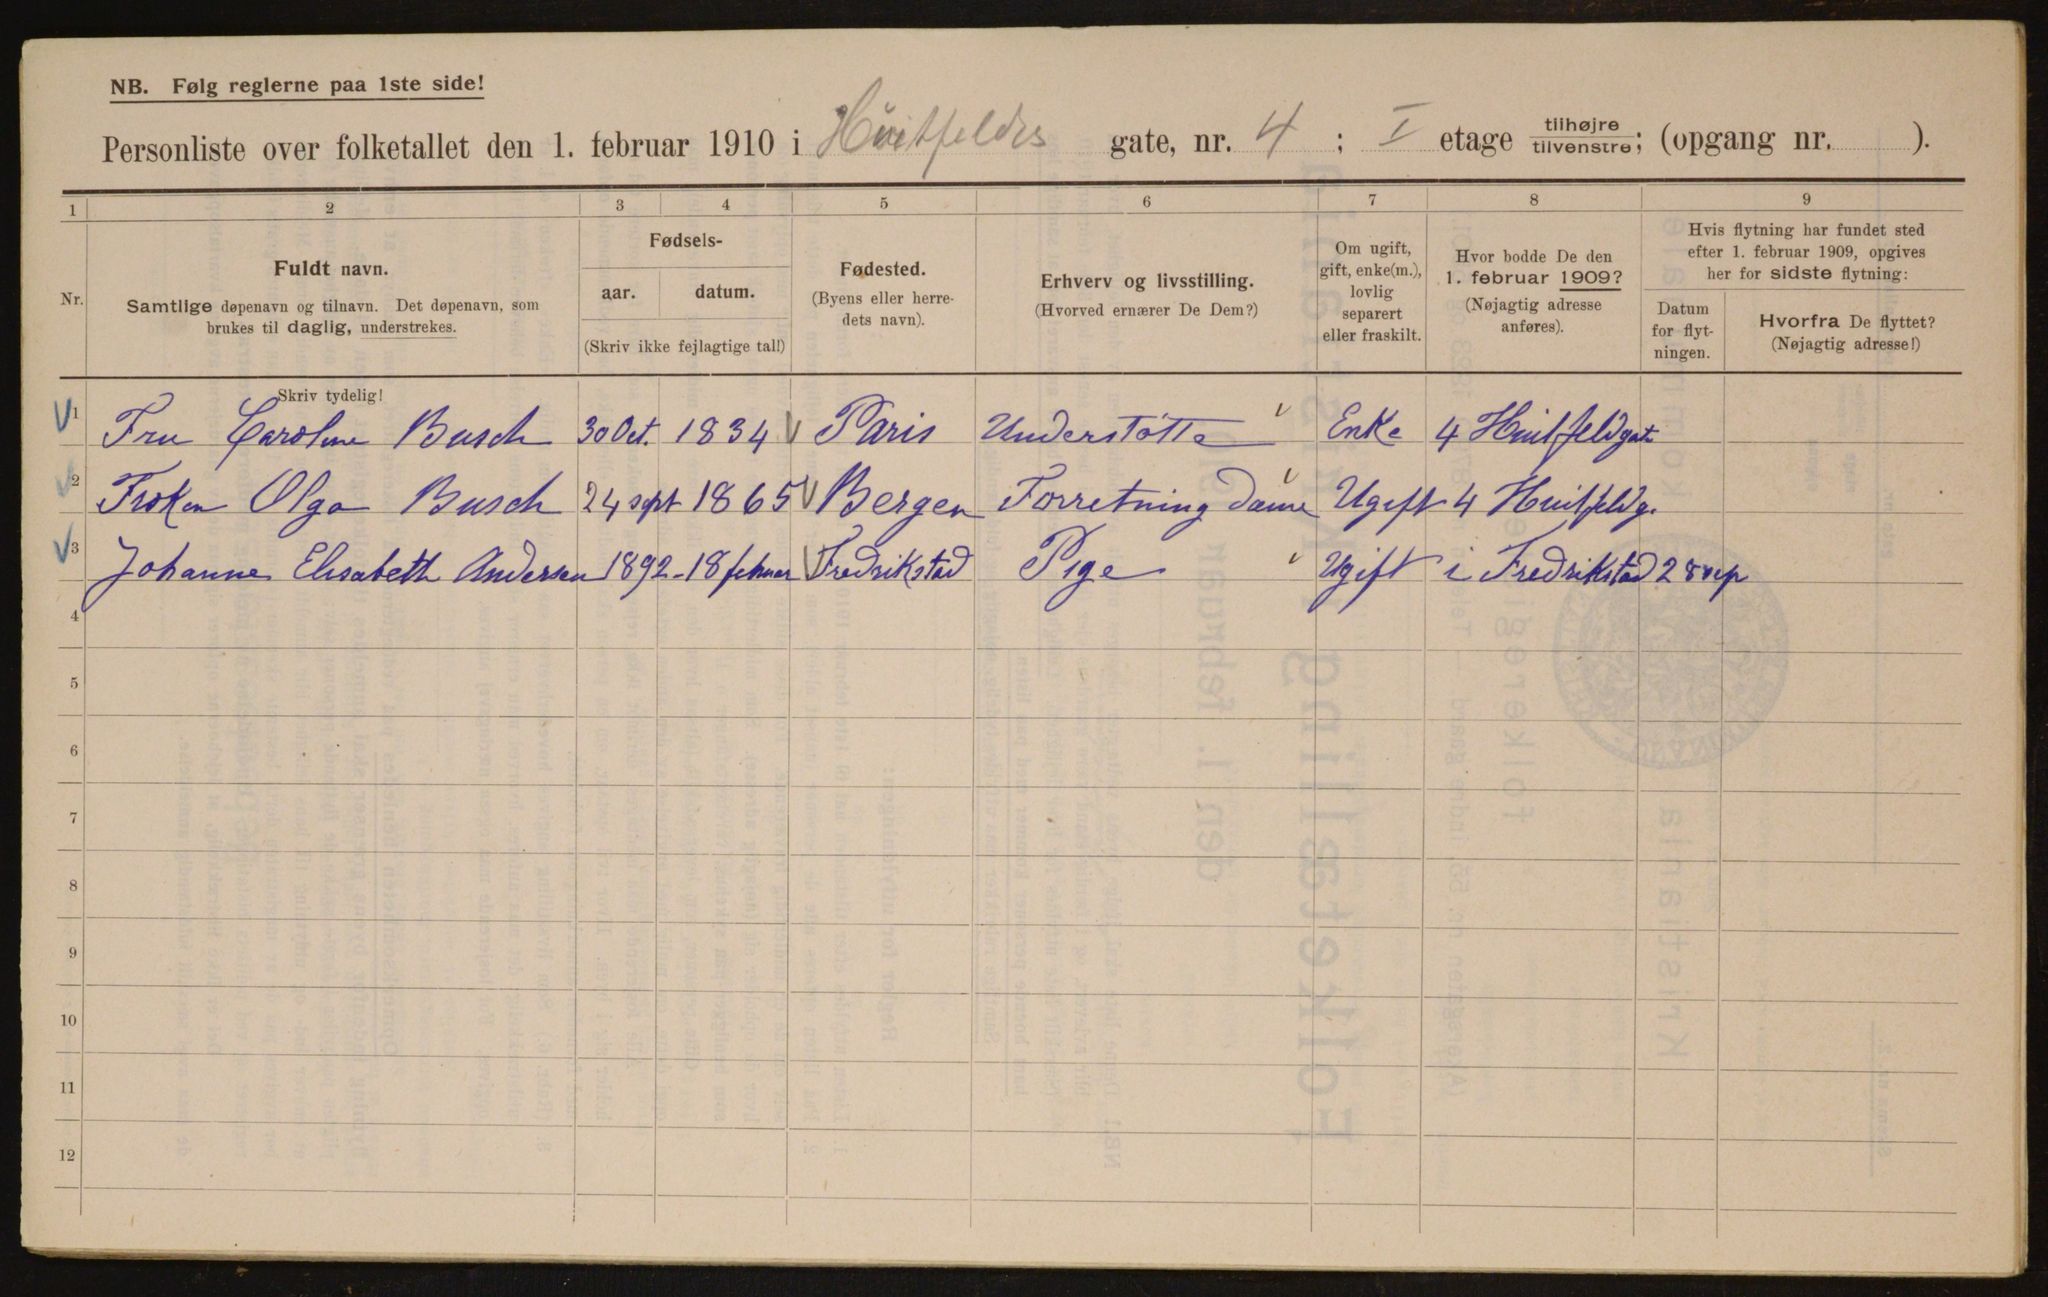 NB. Følg reglerne paa 1ste side!
Personliste over folketallet den 1. februar 1910 i Hvitfeldts gate, nr. 4 ; I etage tilhøjre tilvenstre; (opgang nr. ).
1 2 3 4 5 6 7 8 9
Nr.
Fuldt navn.
Samtlige døpenavn og tilnavn. Det døpenavn, som
brukes til daglig, understrekes.
Fødsels-
aar. datum.
(Skriv ikke fejlagtige tal!)
Fødested.
(Byens eller herre-
dets navn).
Erhverv og livsstilling.
(Hvorved ernærer De Dem?)
Om ugift,
gift, enke(m.),
lovlig
separert
eller fraskilt.
Hvor bodde De den
1. februar 1909?
(Nøjagtig adresse
anføres).
Hvis flytning har fundet sted
efter 1. februar 1909, opgives
her for sidste flytning:
Datum
for flyt-
ningen.
Hvorfra De flyttet?
(Nøjagtig adresse!)
Skriv tydelig!
1 Fru Caroline Busch 30 Oct. 1834 Paris Understøtte Enke 4 Huitfeldgat
2 Frøken Olga Busch 24 sept 1865 Bergen Forretning Dame Ugift 4 Huitfeldg.
3 Johanne Elisabeth Andersen 1892 - 18 februar Fredrikstad Pige Ugift i Fredrikstad 28 sep
4
5
6
7
8
9
10
11
12